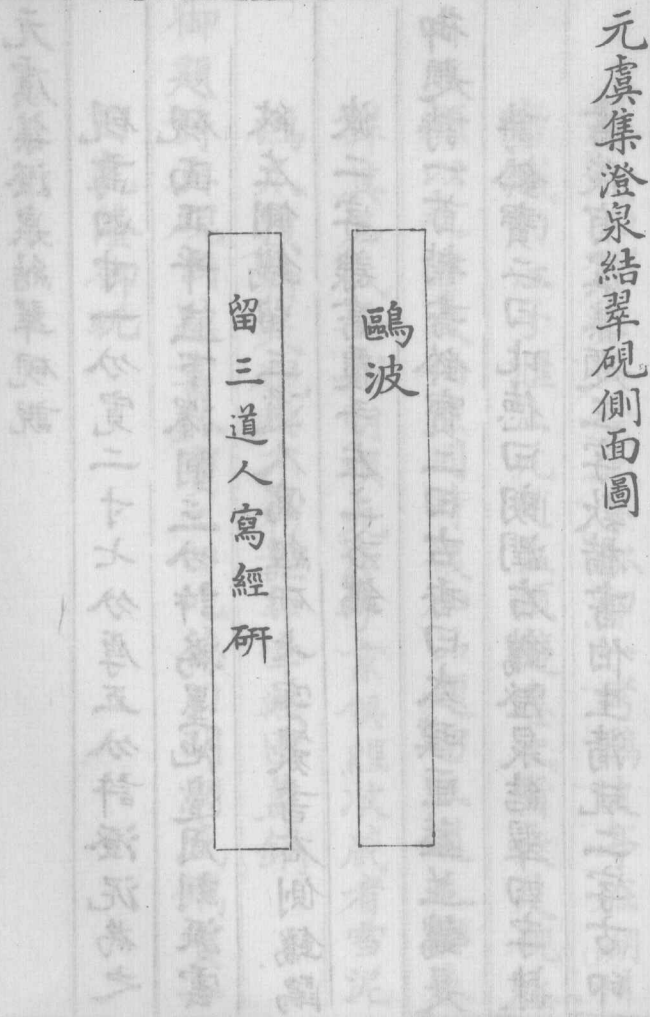 元虞集澄泉結翠硯側面圖
鷗波
留三道人寫經研